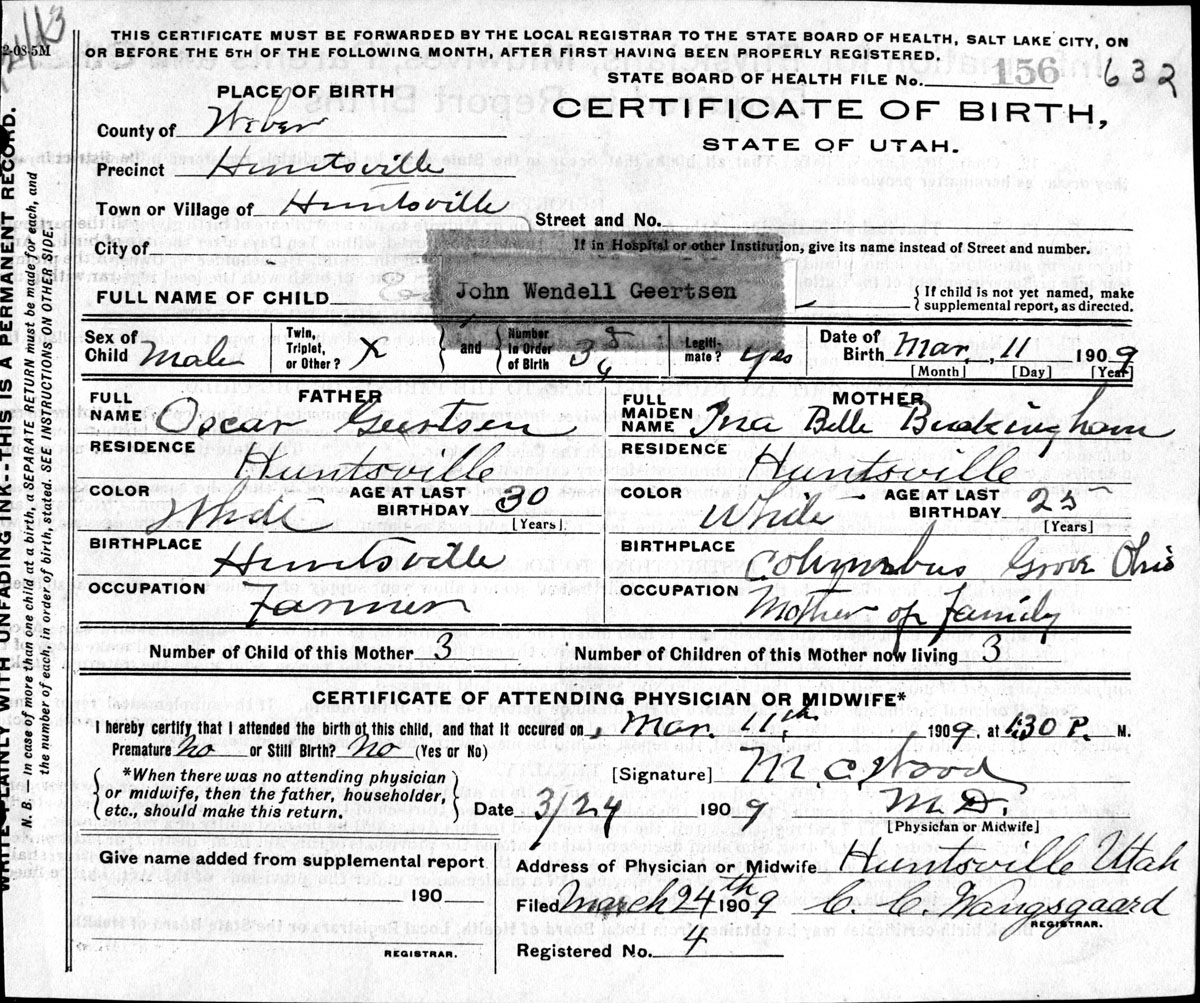 2-08-5M
THIS CERTIFICATE MUST BE FORWARDED BY THE LOCAL REGISTRAR TO THE STATE BOARD OF HEALTH, SALT LAKE CITY, ON
OR BEFORE THE 5TH OF THE FOLLOWING MONTH, AFTER FIRST HAVING BEEN PROPERLY REGISTERED.
STATE BOARD OF HEALTH FILE No. 156 632
PLACE OF BIRTH
CERTIFICATE OF BIRTH,
STATE OF UTAH.
County of Weber
Precinct Huntsville
Town or Village of Huntsville
Street and No.
City of -
If in Hospital or other Institution, give its name instead of Street and number.
FULL NAME OF CHILD John Wendell Geertsen
{If child is not yet named, make
supplemental report, as directed.
Sex of Child Male
Twin, Triplet, or Other? X
and
Number in Order of Birth 3
Legiti-mate? yes
Date of Birth Mar. 11 1909
[Month] [Day] [Year]
FATHER
FULL NAME Oscar Geertsen
RESIDENCE Huntsville
COLOR White
AGE AT LAST BIRTHDAY 30
[Years]
BIRTHPLACE Huntsville
OCCUPATION Farmer
MOTHER
FULL MAIDEN NAME Ina Belle Buckingham
RESIDENCE Huntsville
COLOR White
AGE AT LAST BIRTHDAY
[Years]
BIRTHPLACE Columbus Grove Ohio
OCCUPATION Mother of family
Number of Child of this Mother 3
Number of Children of this Mother now living 3
CERTIFICATE OF ATTENDING PHYSICIAN OR MIDWIFE*
I hereby certify, that I attended the birth of this child, and that it occured on Mar. 11th 1909, at :30 P. M.
Premature No or Still Birth? No (Yes or No)
*When there was no attending physician
or midwife, then the father, householder,
etc., should make this return.
[Signature] M C Wood
M.D.
[Physician or Midwife]
Date 3/24 1909
Give name added from supplemental report
190
REGISTRAR.
Address of Physician or Midwife Huntsville Utah
Filed March 24th 1909 C. C. Wangsgaard
REGISTRAR.
Registered No. 4
WRITE PLAINLY WITH UNFADING INK--THIS IS A PERMANENT RECORD.
N. B. In case of more than one child at a birth, a SEPARATE RETURN must be made for each, and
the number of each, in order of birth, stated. SEE INSTRUCTIONS ON OTHER SIDE.